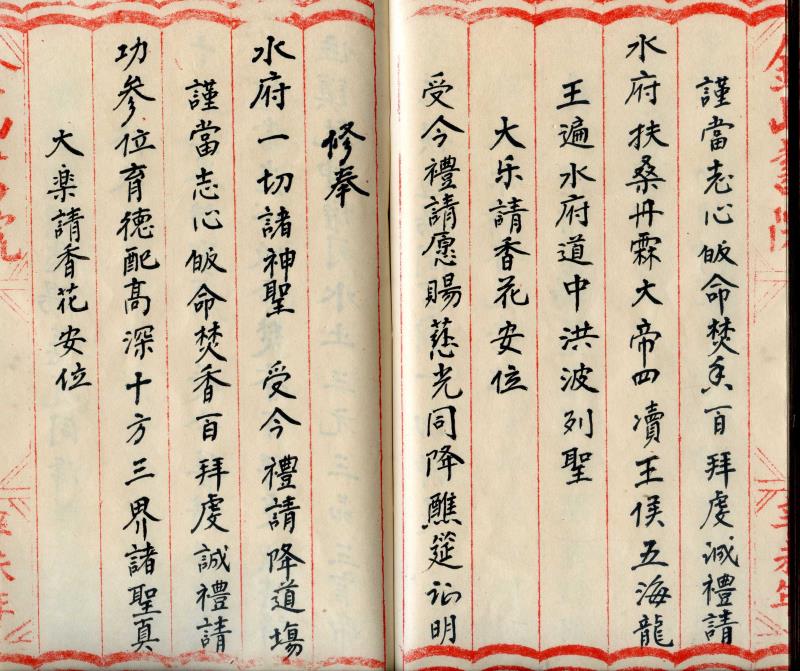 謹當志心皈命焚香百拜虔誠禮請
水府扶桑丹霖大帝四瀆王侯五海龍
王遍水府道中洪波列聖
大乐請香花安位
受今禮請愿賜慈光同降醮筵证明
修奉
水府一切諸神聖 受今禮請降道場
謹當志心皈命焚香百拜虔誠禮請
功參位育德配高深十方三界諸聖真
大楽請香花安位